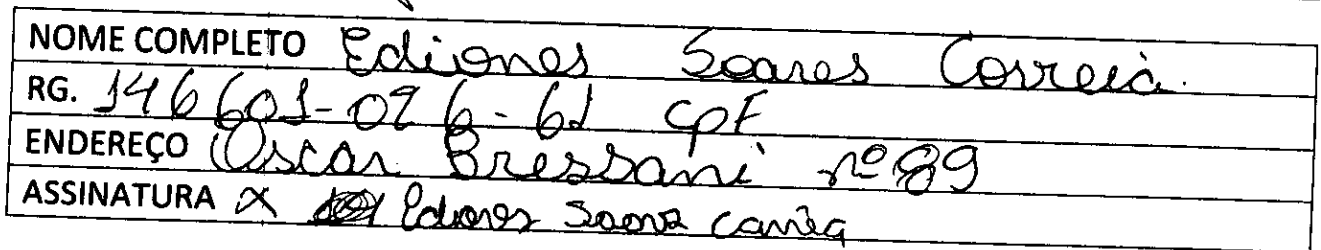 NOME COMPLETO Ediones Soares Correia.
RG. 146601-096-61 CPF
ENDEREÇO Oscar Bressani nº 89
ASSINATURA X Ediones Soares